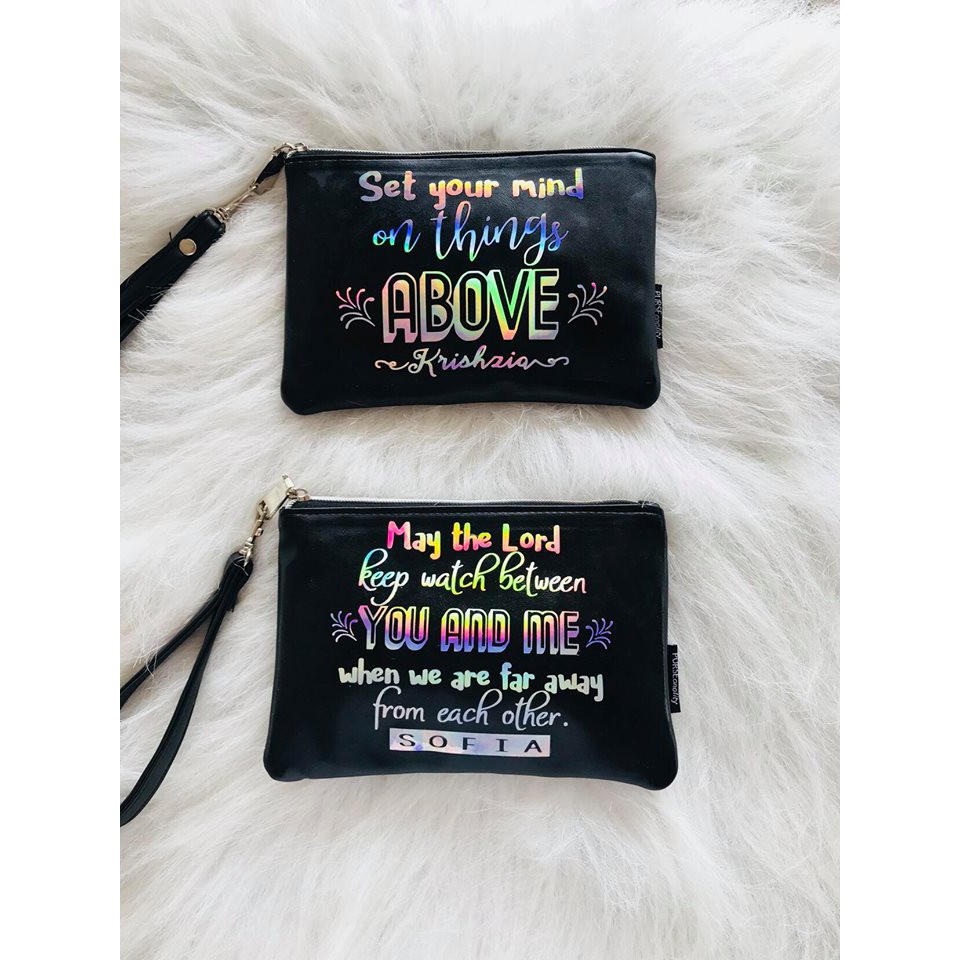 Set your mind
on things
ABOVE
Krishzia
PURSEonality
May the Lord
keep watch between
YOU AND ME
when we are far away
from each other.
SOFIA
PURSEonality